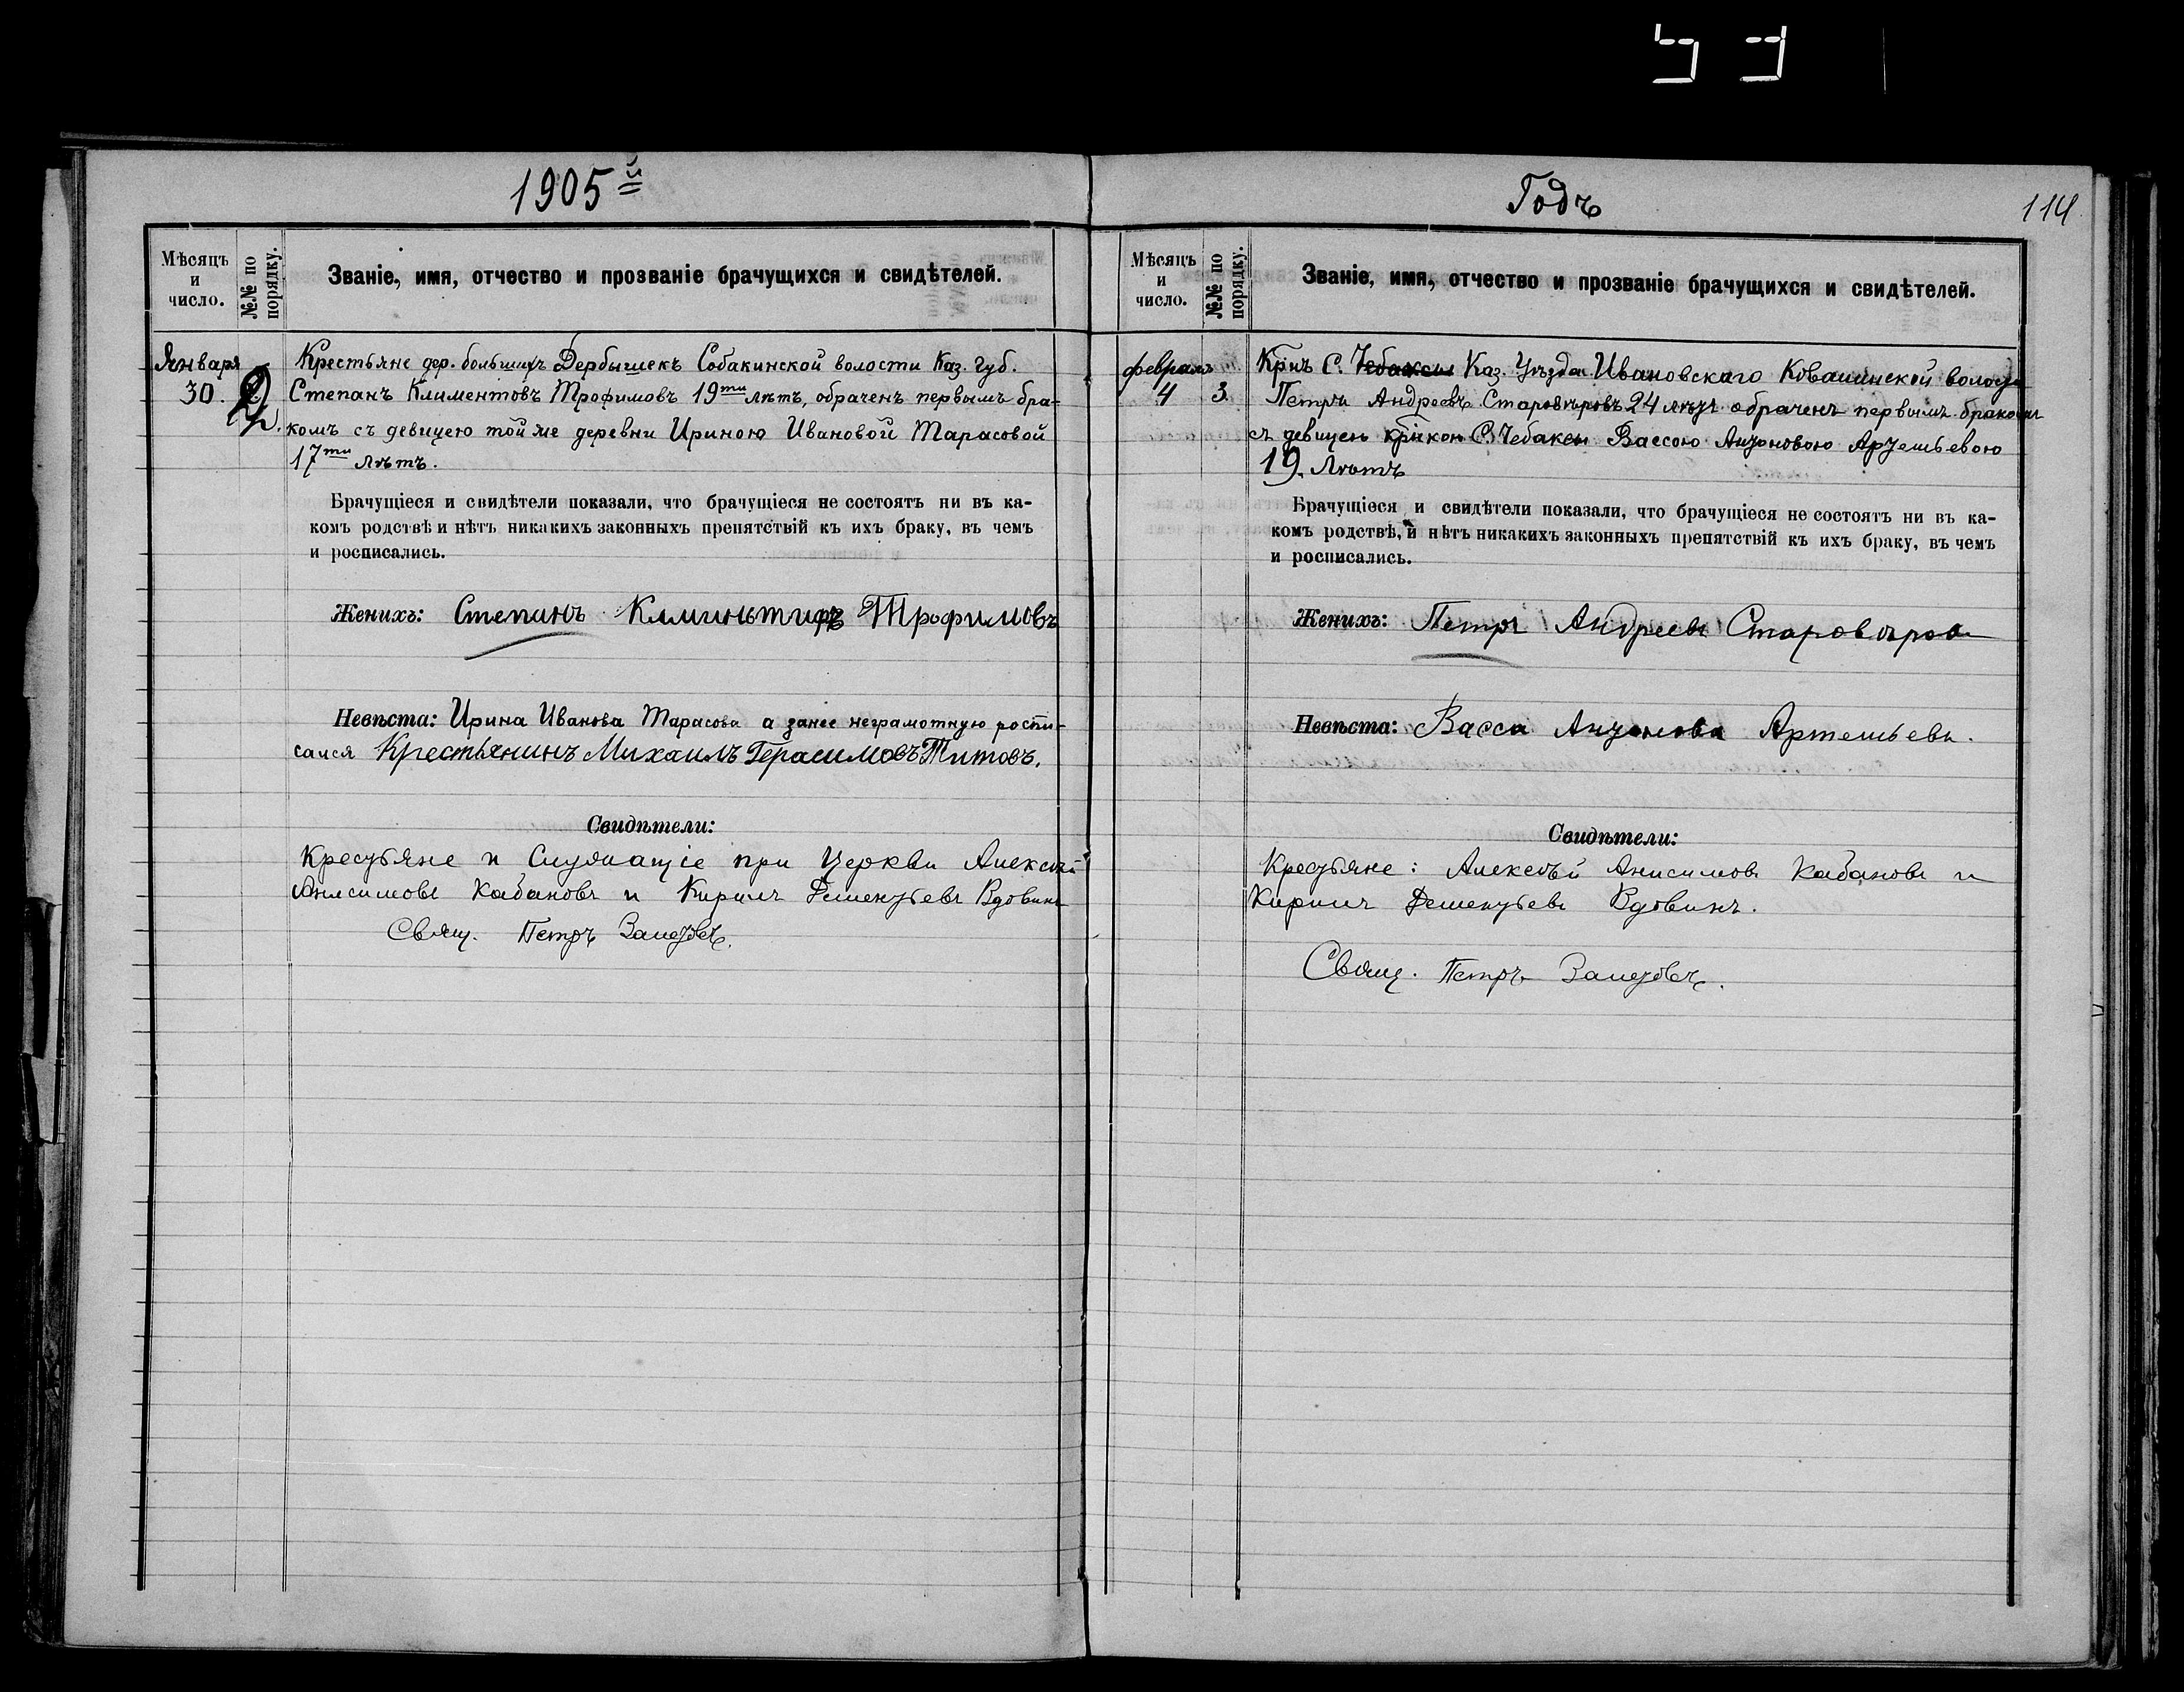 1905й
Мѣсяцъ и число.
№№ по порядку.
Званіе, имя, отчество и прозваніе брачущихся и свидѣтелей.
Января
30. 2.
Крестьяне дер. большихъ Дербышекъ Собакинской волости Каз. Губ.
Степанъ Климентовъ Трофимовъ 19ти лѣтъ, обраченъ первымъ бра-
комъ съ девицею той же деревни Ириною Ивановой Тарасовой
17ти лѣтъ.
Брачущіеся и свидѣтели показали, что брачущіеся не состоятъ ни въ ка-
комъ родствѣ и нѣтъ никакихъ законныхъ препятствій къ ихъ браку, въ чемъ
и росписались.
Женихъ: Степанъ Трофимовъ
Невѣста: Ирина Иванова Тарасова а занее неграмотную роспи-
сался Крестьянинъ Михаилъ Герасимовъ Титовъ.
Свидѣтели:
Крестьяне и Служащіе при Церкви Алексѣй
Анисимовъ Кабановъ и Кирилъ Дементьевъ Вдовинъ
Свящ. Петръ
Годъ
114
Мѣсяцъ и число.
№№ по порядку.
Званіе, имя, отчество и прозваніе брачущихся и свидѣтелей.
февраль
4 3
Крнъ С. Чебаксы Каз. Уѣзда Ивановскаго волости
Петръ Андреевъ Старовѣровъ 24 лѣтъ обраченъ первымъ бракомъ
съ девицею С. Чебаксы Вассою Антоновою Артемьевою
19. Лѣтъ
Брачущіеся и свидѣтели показали, что брачущіеся не состоятъ ни въ ка-
комъ родствѣ, и нѣтъ никакихъ законныхъ препятствій къ ихъ браку, въ чемъ
и росписались.
Женихъ: Петръ Андреевъ Старовѣровъ
Невѣста: Васса Антонова Артемьева.
Свидѣтели:
Крестьяне: Алексѣй Анисимовъ Кабановъ и
Кирилъ Дементьевъ Вдовинъ.
Свящ. Петръ